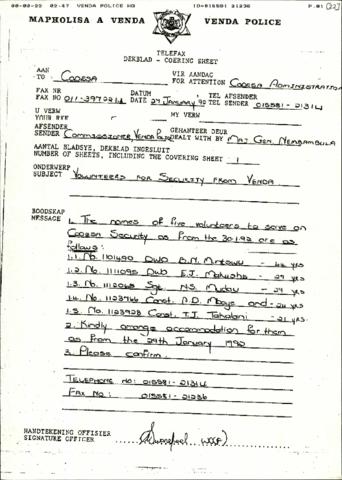 00-00-22 02:47 VENDA POLICE HQ ID=015581 21236 P.01
MAPHOLISA A VENDA VENDA POLICE
TELEFAX
DEKBLAD - COERING SHEET
AAN VIR AANDAG
TO CODESA FOR ATTENTION CODESA ADMINISTRATION
FAX NR DATUM TEL AFSENDER
FAX NO 011-3972214 DATE 27 JANUARY 92 TEL SENDER 015581-21314
U VERW MY VERW
YOUR REF
AFSENDER GEHANTEER DEUR
SENDER COMMISSIONER VENDA DEALT WITH BY MAJ GEN NEMBAMBULA
AANTAL BLADSYE, DEKBLAD INGESLUIT
NUMBER OF SHEETS, INCLUDING THE COVERING SHEET 1
ONDERWERP
SUBJECT VOLUNTEERS FOR SECURITY FROM VENDA
BOODSKAP
MESSAGE 1. The names of five volunteers to serve on
CODESA Security as from the 30.1.92 are as
follows:
1.1. No. D/WO B.N.
1.2. No. 1111090 D/WO E.J. - 29 yrs
1.3. No. 1112068 Sgt N.S. Mudau - 27 yrs
1.4. No. 1123766 Const. and - 24 yrs
1.5. No. 1123928 Const. T.J. - 21 yrs
2. Kindly arrange accommodation for them
as from the 29th January 1992
3. Please confirm.
TELEPHONE NO: 015581-21314
FAX NO: 015581-21236
HANDTEKENING OFFISIER
SIGNATURE OFFICER